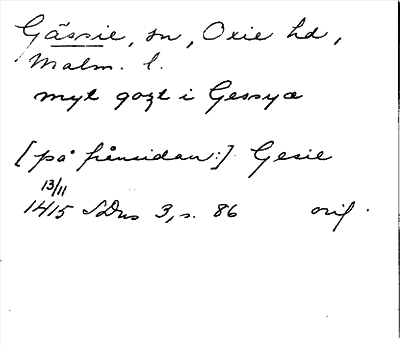 Gässie, sn, Oxie hd,
Malm. l.
myt gozt i Gessyæ
[på frånsidan:] Gesie
13/11
1415 SDns 3, s. 86 orig.